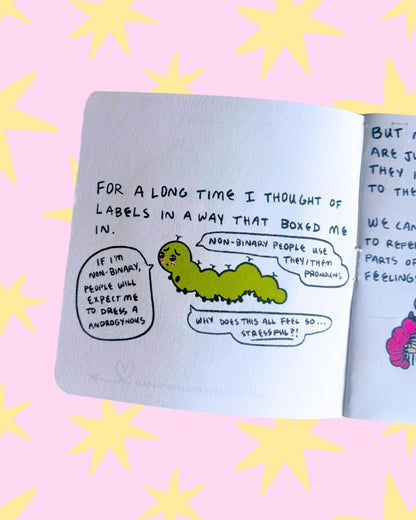 FOR A LONG TIME I THOUGHT OF
LABELS IN A WAY THAT BOXED ME
IN.
NON-BINARY PEOPLE USE
THEY/THEM
PRONOUNS
IF I'M
NON-BINARY,
PEOPLE WILL
EXPECT ME
TO DRESS A
ANDROGYNOUS
WHY DOES THIS ALL FEEL SO...
STRESSFUL?!
BUT
ARE JU
THEY
TO THE
WE CAN
TO REFE
PARTS OF
FEELINGS